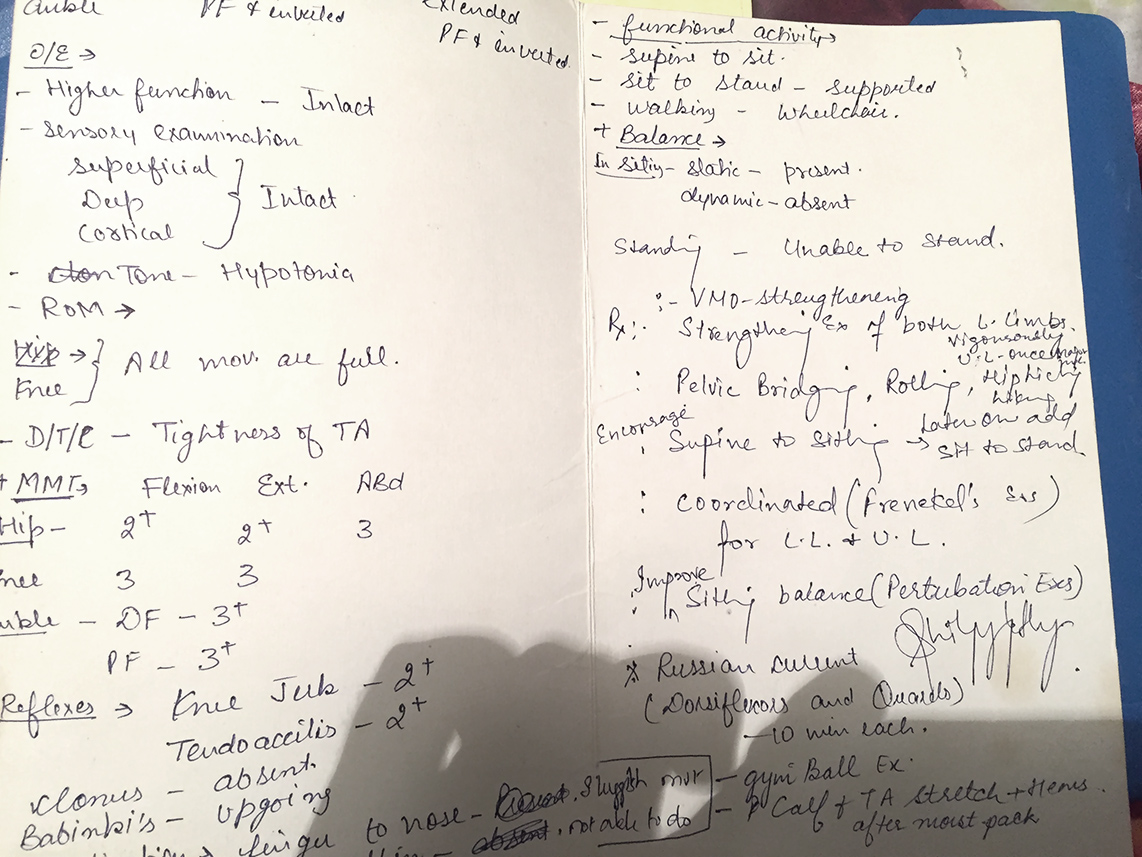 PF & inverted
extended
PF & inverted.
O/E →
- Higher function - Intact
- Sensory examination
Superficial
Deep
Cortical
Intact
- Tone - Hypotonia
- ROM →
Hip →
Knee
All mov. are full.
- D/T/C - Tightness of TA
+ MMT →
Flexion Ext. ABd
Hip - 2+ 2+ 3
Knee 3 3
- DF - 3+
PF - 3+
Reflexes → Knee Jerk - 2+
Tendoaccilis - 2+
Clonus - absent
Babinki's - upgoing
finger to nose - Sluggish mvt
absent, not able to do
- functional activity →
- Supine to sit.
- Sit to stand - supported
- walking - Wheelchair.
+ Balance →
In - static - present.
dynamic - absent
Standing - Unable to stand.
:- VMO-strengthening
Rx:. Strengthening Ex of both L. limbs.
vigorously
U.L-once
: Pelvic Bridging, Rolling,
hiking
Encourage
: Supine to Sitting → Later on add
Sit to stand
: Coordinated (Frenekel's Exs)
for L.L. & U.L.
Improve
: Sitting balance (Pertubation Exs)
Russian current
(Dorsiflexors and Quards)
- 10 min each.
- gym Ball Ex.
- Calf & TA stretch +
after moist pack